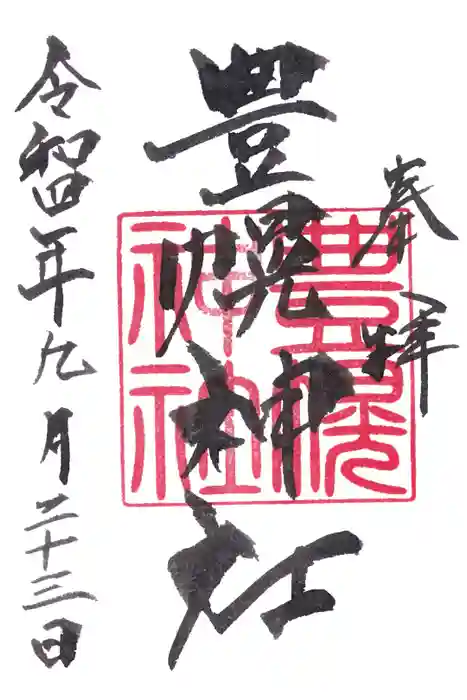 奉拝
豊幌神社
豊幌
神社
令和四年九月二十三日